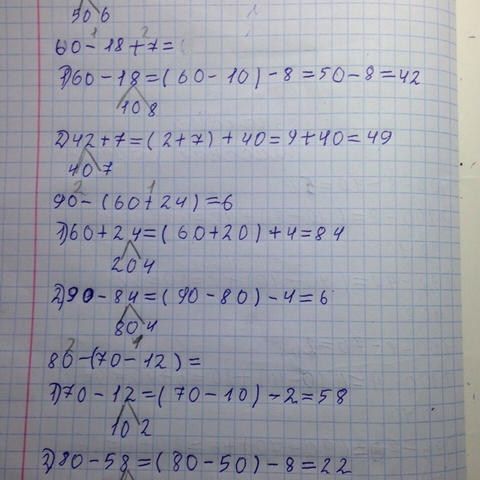 50 6
1 2
60-18+7=
1)60-18=(60-10)-8=50-8=42
10 8
2)42+7=(2+7)+40=9+40=49
40 7
2 1
90-(60+24)=6
1)60+24=(60+20)+4=84
20 4
2)90-84=(90-80)-4=6
80 4
2 1
80-(70-12)=
1)70-12=(70-10)-2=58
10 2
2)80-58=(80-50)-8=22